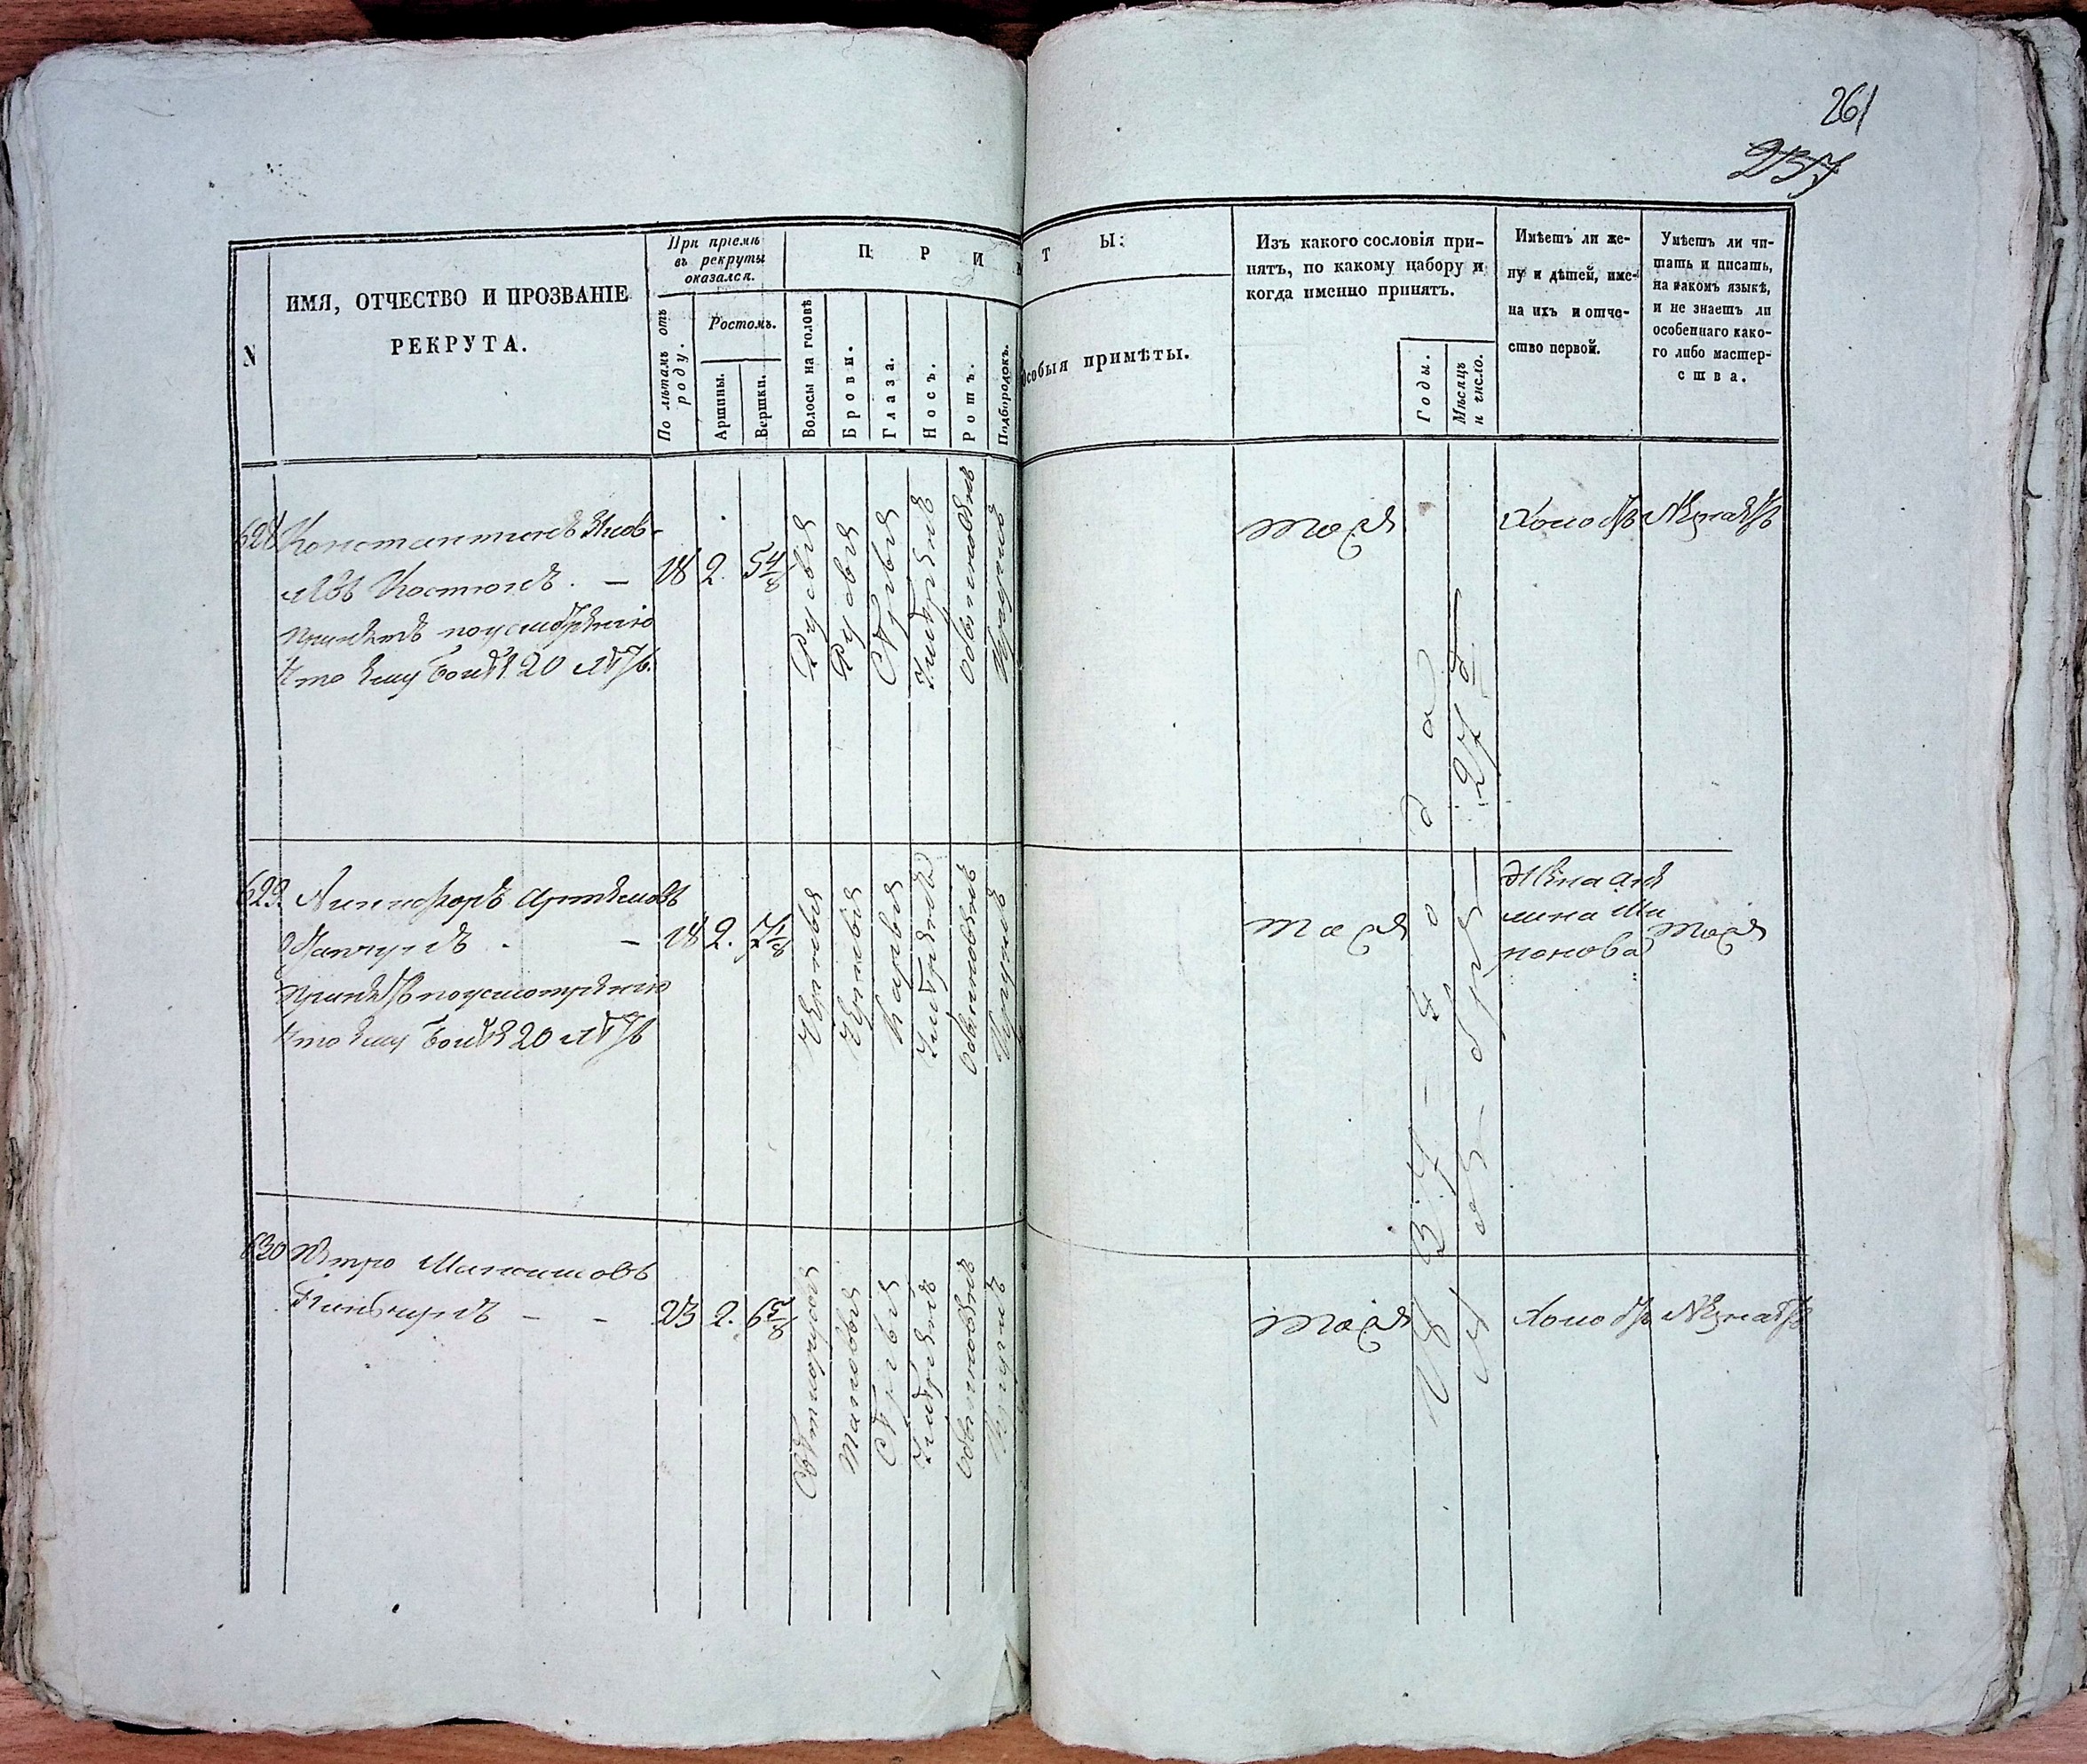 261
237
N
ИМЯ, ОТЧЕСТВО И ПРОЗВАНІЕ
РЕКРУТА.
При пріемѣ
въ рекруты
оказался.
По лѣтамъ отъ
роду.
Ростомъ.
Аршины.
Вершки.
П Р И М Ѣ Т Ы:
Волосы на головѣ
Брови.
Глаза.
Носъ.
Ротъ.
Подбородокъ.
Особыя примѣты.
Изъ какого сословія при-
нятъ, по какому набору и
когда именно принятъ.
Годы.
Мѣсяцъ
и число.
Имѣетъ ли же-
ну и дѣтей, име-
на ихъ и отче-
ство первой.
Умѣетъ ли чи-
тать и писать,
на какомъ языкѣ,
и не знаетъ ли
особеннаго како-
го либо мастер-
ства.
628
Константинъ
Костюкъ. —
Принятъ поусмотрѣнію
что ему болѣе 20 лѣтъ
18
2.
5 4/8
Русыя
Русыя
Сѣрыя
Умѣренъ
обыкновенъ
Круглъ
тоже
Холостъ
Незнаетъ
629.
Никифоръ Артемовъ
Принятъ поусмотрѣнію
что ему болѣе 20 лѣтъ
18
2.
7 1/8
Черныя
Черныя
Карыя
Умѣренъ
обыкновенъ
Круглъ
тоже
Жена
тоже
630
Петро Максимовъ
23
2.
6 5/8
Свѣтлорусыя
Таковыя
Сѣрыя
Умѣренъ
обыкновенъ
Круглъ
тоже
Холостъ
Незнаетъ
года
27